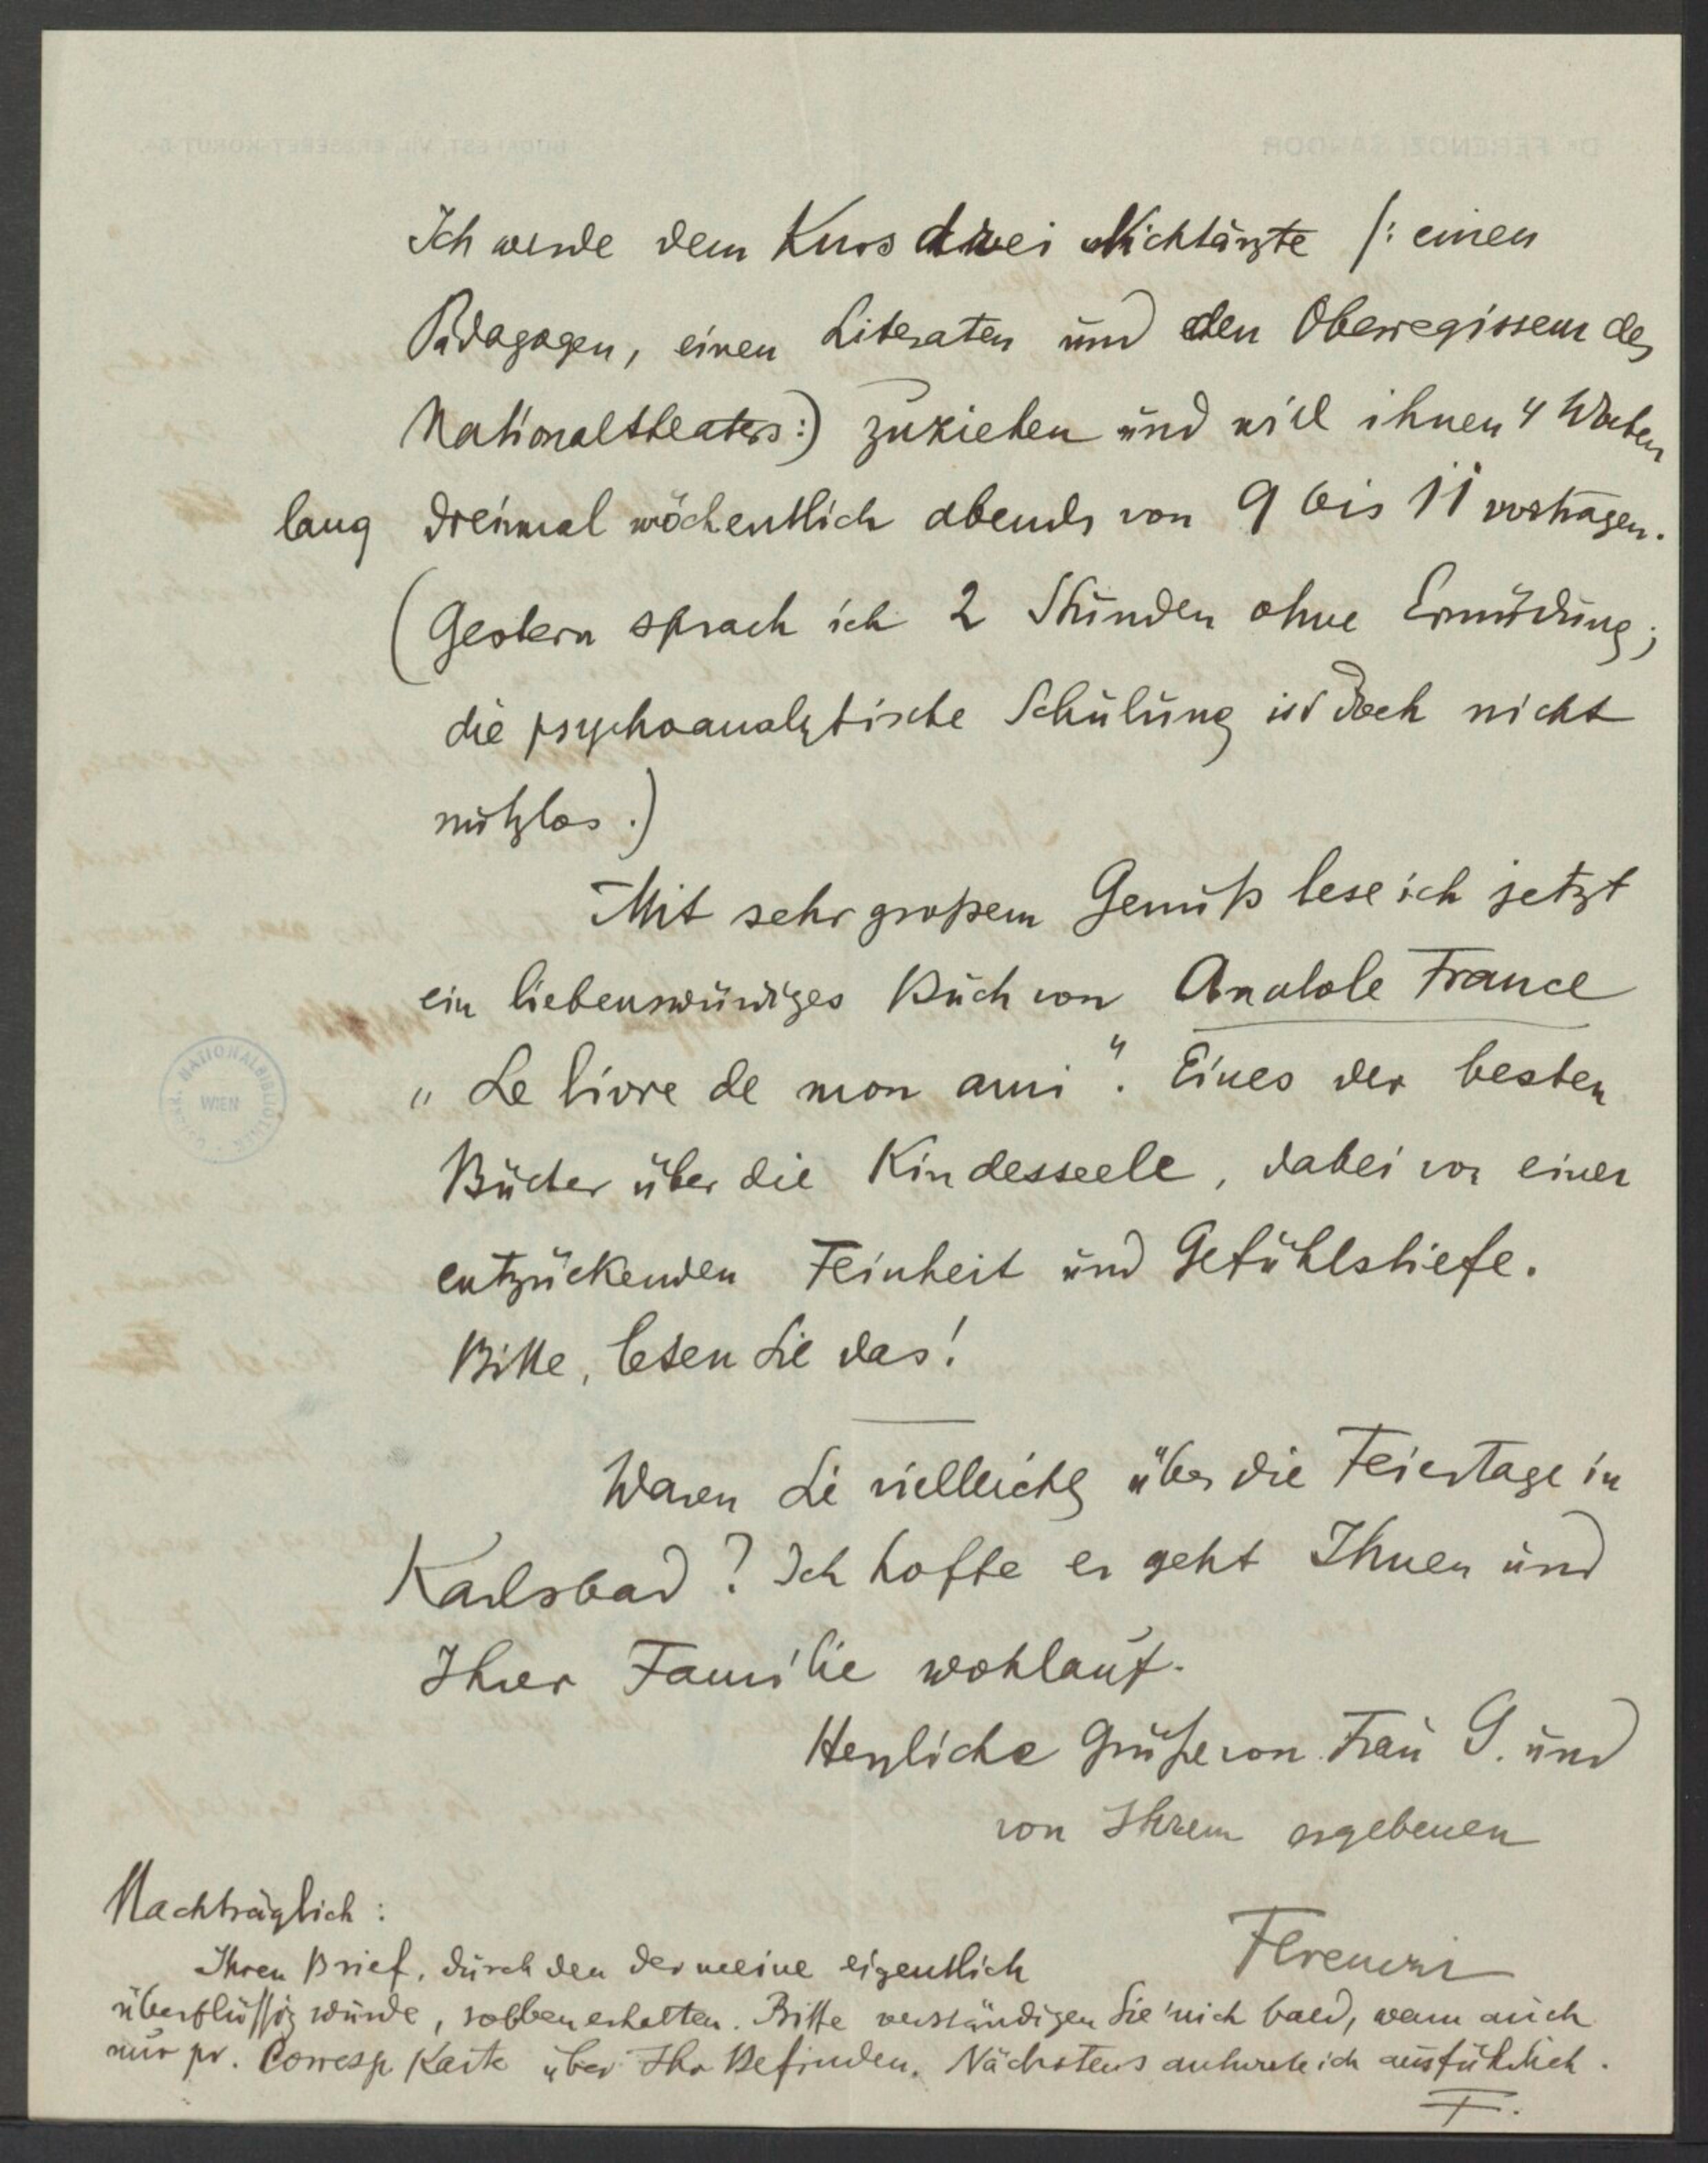 Ich werde dem Kurs drei Nichtärzte /: einen
Pädagogen, einen Literaten und den Oberregisseur des
Nationaltheaters :) zuziehen und will ihnen 4 Wochen
lang dreimal wöchentlich abends von 9 bis 11 vortragen.
(Gestern sprach ich 2 Stunden ohne Ermüdung;
die psychoanalytische Schulung ist doch nicht
nutzlos.)
Mit sehr großem Genuß lese ich jetzt
ein liebenswürdiges Buch von Anatole France
„Le livre de mon ami“. Eines der besten
Bücher über die Kindesseele, dabei von einer
entzückenden Feinheit und Gefühlstiefe.
Bitte, lesen Sie das!
Waren Sie vielleicht über die Feiertage in
Karlsbad? Ich hoffe es geht Ihnen und
Ihrer Familie wohlauf.
Herzliche Grüße von Frau G. und
von Ihrem ergebenen
Ferenczi
Nachträglich:
Ihren Brief, durch den der meine eigentlich
überflüssig würde, soeben erhalten. Bitte verständigen Sie mich bald, wenn auch
nur pr. Corresp Karte über Ihr Befinden. Nächstens antworte ich ausführlich.
F.
NATIONALBIBLIOTHEK
WIEN